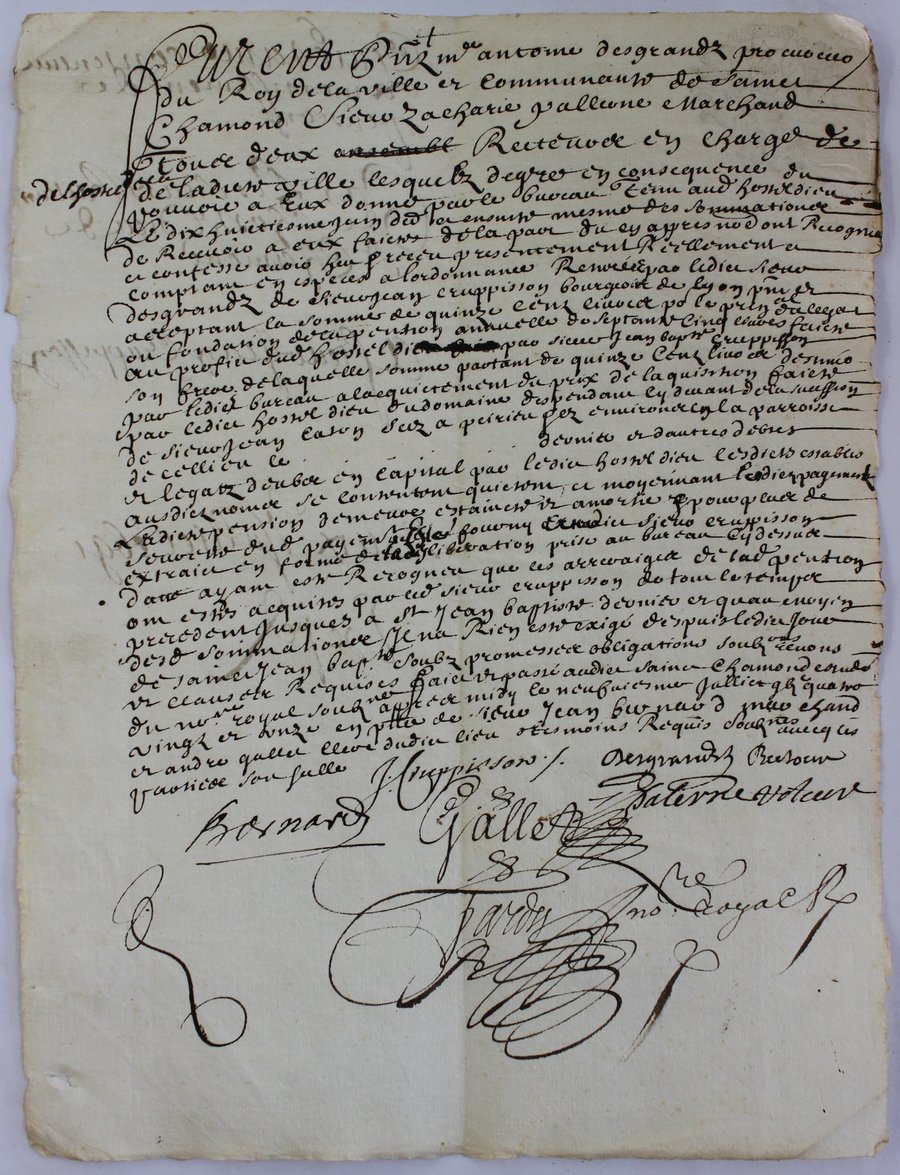 Furent pntz me antoine desgrandz procureur
du Roy de la ville et communauté de sainct
Chamond Sieur Zacharie palleone Marchand
tous deux Recteurs en charge de
de l'hostel dieu
de ladicte ville lesquelz de gre en consequence du
pouvoir a Eux donné par le bureau tenu aud hostel dieu
Le dix huictiesme juin dernier ensuite mesme des sommationes
de Recevoir a eux faicte de la part du cy apres nommé ont Recogneu
et confessé avoir heu et receu presentement Reellement et
comptant en especes a lordonnance Remises par ledict sieur
desgrandz de sieur Jean cruppisson bourgeois de Lyon pnt et
acceptant la somme de quinze centz livres po le prinal du legat
ou fondation de la pension annuelle de septante cinq livres faicte
au proffit dud hostel dieu par sieur Jean bapte cruppisson
son frere de laquelle somme partant de quinze centz livres destinée
par ledict bureau a lacquictement du prix de laquisition faicte
par ledict hostel dieu du domaine despendant cy devant de la succession
de sieur Jean caton scize a peirieu et environs en la parroisse
de cellieu le dernier et dautres debtes
et legatz deubz en capital par ledict hostel dieu lesdicts establis
ausdictz nomz se contentent quictent et moyennant ledict payement
Ladicte pension demeure estaincte et amortie et pour plus de
seurete dud payement a esté fourny audict sieur cruppisson
extraict en forme de la deliberation prise au bureau cy dessus
datté ayant esté Recogneu que les arrerages de lad pention
ont estés acquités par led sieur cruppisson de tout le temps
precedent jusques a st Jean baptiste dernier et quau moyen
desd sommationes il na Rien esté exigé despuis ledict jour
de sainct Jean bapte soubz promesses obligations soubmons Renons
et clauses Requises faict et passé audict sainct Chamond estude
du nore royal soubné apres midy le neufviesme juillet quatre
vingt et onze en pnce de sieur Jean bernard marchand
et andre gallet clerc dudict lieu tesmoins Requis soubnes avec les
parties son salle
J. Cruppisson Desgrandz Recteur
Bernard Gallet palerne recteur
Jardin nore Royal R